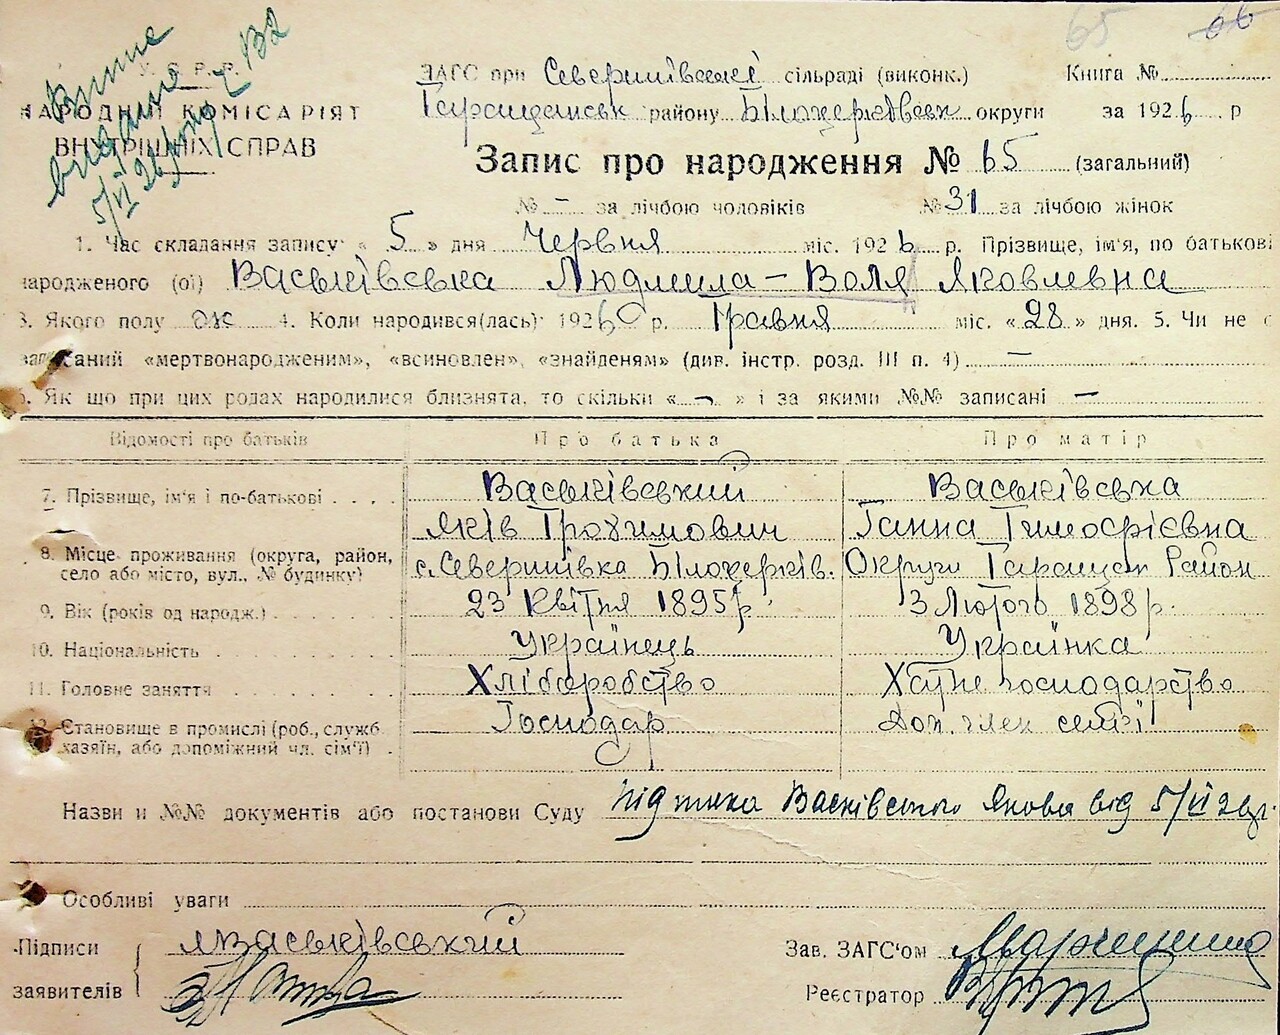 65 66
Витяг
видано
5/VI 26
У.С.Р.Р.
НАРОДНИЙ КОМІСАРІЯТ
ВНУТРІШНІХ СПРАВ
ЗАГС при Северинівській сільраді (виконк.) Книга №
Таращанськ району Білоцерківськ округи за 1926 р
Запис про народження № 65 (загальний)
№ – за лічбою чоловіків № 31 за лічбою жінок
1. Час складання запису: « 5 » дня Червня міс. 1926 р. Прізвище, ім'я, по батькові
народженого (ої) Васьківська Людмила–Воля Яковлевна
3. Якого полу ж 4. Коли народився(лась): 1926 р. Травня міс. «28» дня. 5. Чи не є
записаний «мертвонародженим», «всиновлен», «знайденям» (див. інстр. розд. III п. 4) —
6. Як що при цих родах народилися близнята, то скільки « – » і за якими №№ записані –
Відомості про батьків Про батька Про матір
7. Прізвище, ім'я і по-батькові Васьківський Васьківська
Яків Трохимович Ганна Тимофієвна
8. Місце проживання (округа, район, с. Северинівка Білоцерків. Округи Таращан Район
село або місто, вул., № будинку)
9. Вік (років од народж.) 23 Квітня 1895 р. 3 Лютого 1898 р.
10. Національність Українець Українка
11. Головне заняття Хліборобство Хатнє господарство
12. Становище в промислі (роб., служб. Господар Доп. член сем'ї
хазяїн, або допоміжний чл. сім'ї)
Назви и №№ документів або постанови Суду Васківського Якова від 5/VI 26 р.
Особливі уваги
Підписи ЯВаськівський Зав. ЗАГС'ом
заявителів Реєстратор